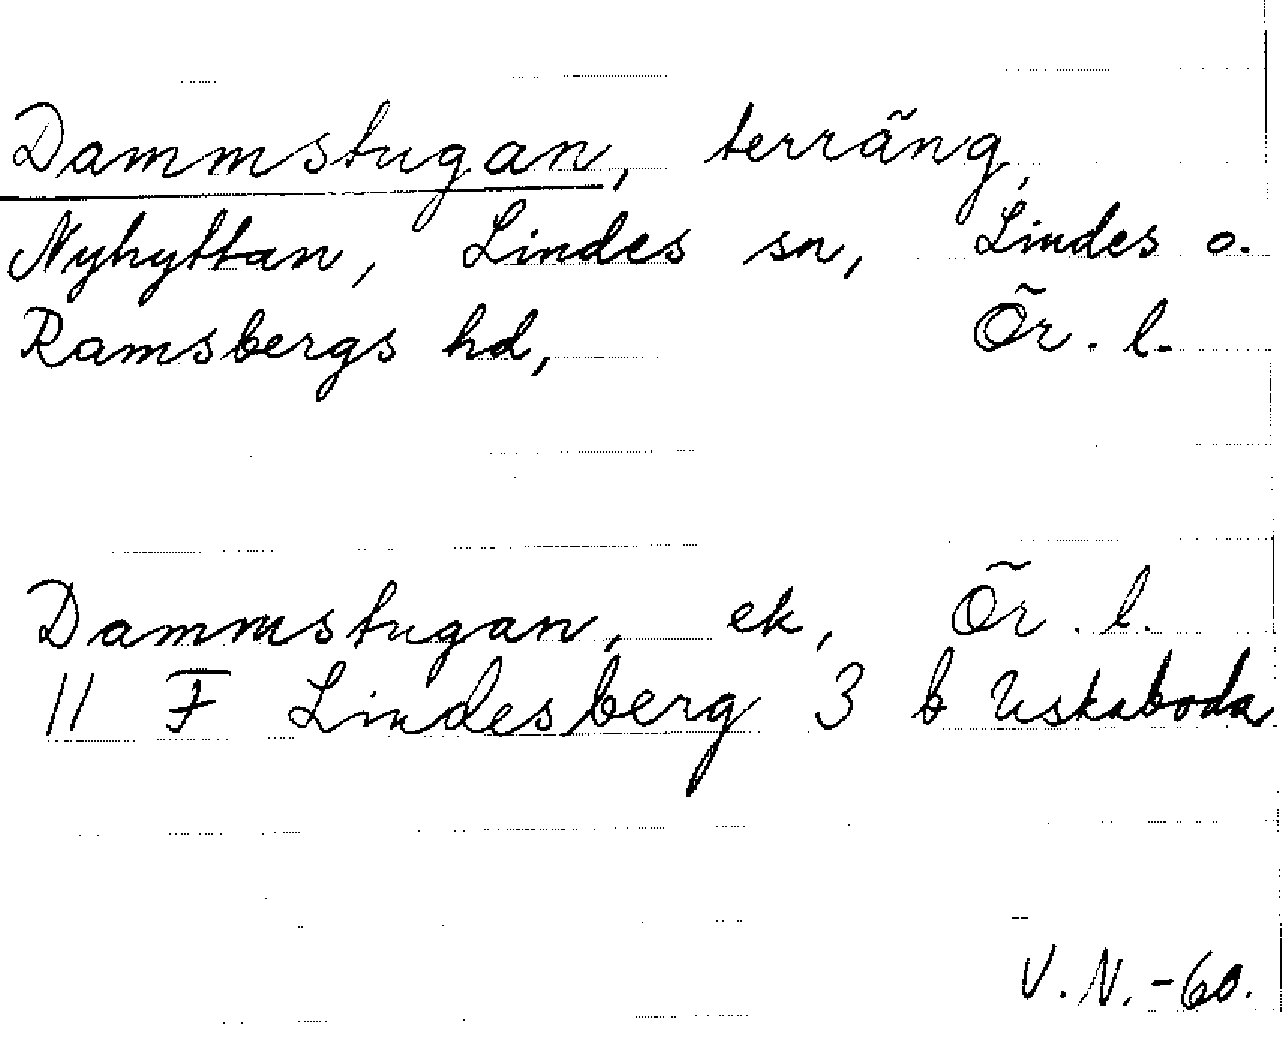 Dammstugan, terräng,
Nyhyttan, Lindes sn, Lindes o.
Ramsbergs hd, Ör. l.
Dammstugan, ek, Ör. l.
11 F Lindesberg 3 b Uskaboda
V. N. -60.